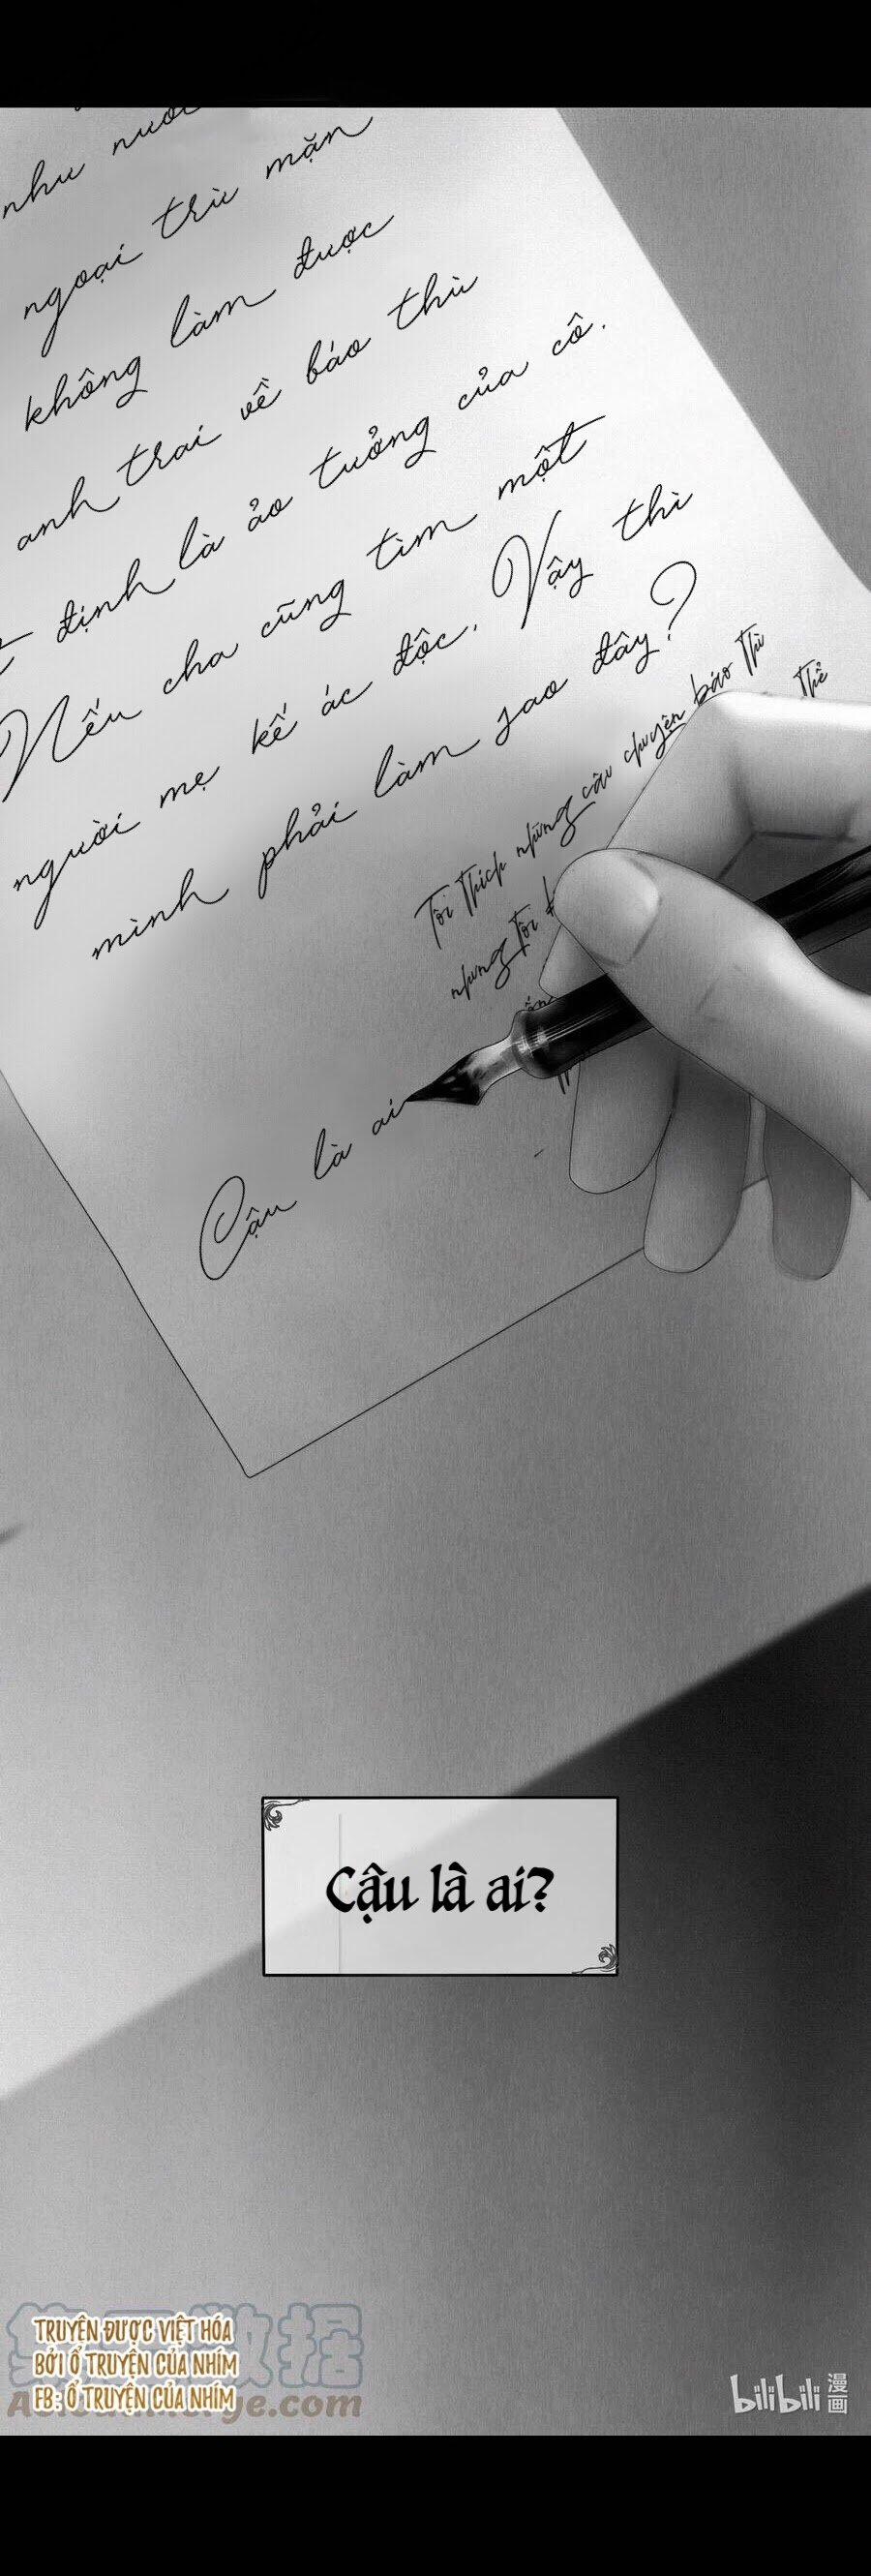 như nước
ngoại trừ mặn
không làm được
anh trai về báo thù
định là ảo tưởng của cô.
Nếu cha cũng tìm một
người mẹ kế ác độc. Vậy thì
mình phải làm sao đây?
Tôi thích những câu chuyện báo thù
nhưng tôi
thể
Cậu là ai
Cậu là ai?
TRUYỆN ĐƯỢC VIỆT HÓA
BỞI Ổ TRUYỆN CỦA NHÍM
FB: Ổ TRUYỆN CỦA NHÍM
bilibili 漫画